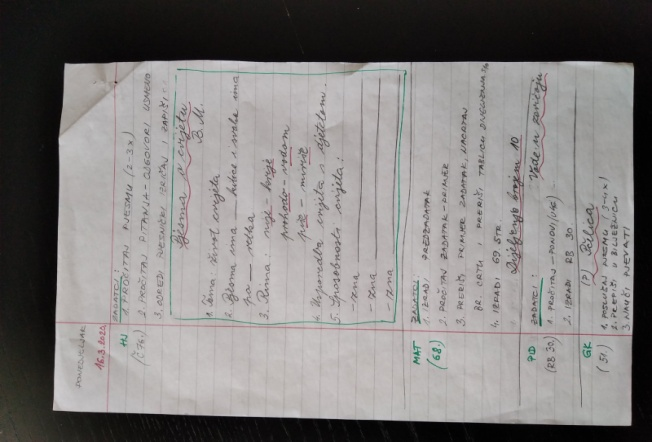 PONEDJELJAK
16.3.2020.
HJ
ZADATCI:
1. PROČITAJ PJESMU (2-3X)
2. PROČITAJ PITANJA-ODGOVORI USMENO
3. ODREDI PJESNIČKI I ZAPIŠI:
Pjesma o cvijetu
B. M.
1. Tema: život cvijeta
2. Pjesma ima ___ kitice i svaka ima
po ___ retka
3. Rima: nije - krije
prohodo - vodom
4. Usporedba cvijeta s djetetom.
5. Sposobnosti cvijeta:
- zna
- zna
- zna
MAT
(68.)
ZADATCI:
1. IZRADI PREDZADATAK
2. PROČITAJ ZADATAK-PRIMJER
3. PREPIŠI PRIMJER ZADATAK, NACRTAJ
BR. CRTU I PREPIŠI TABLICU
4. IZRADI 69 STR.
Dijeljenje brojem 10
PID
(RB 30)
Vode u zavičaju
ZADATCI:
1. PROČITAJ-PONOVI
2. IZRADI RB 30
GK
(51.)
1. POSLUŠAJ PJESMU (3-4X)
2. PREPIŠI U BILJEŽNICU
3. NAUČI PJEVATI